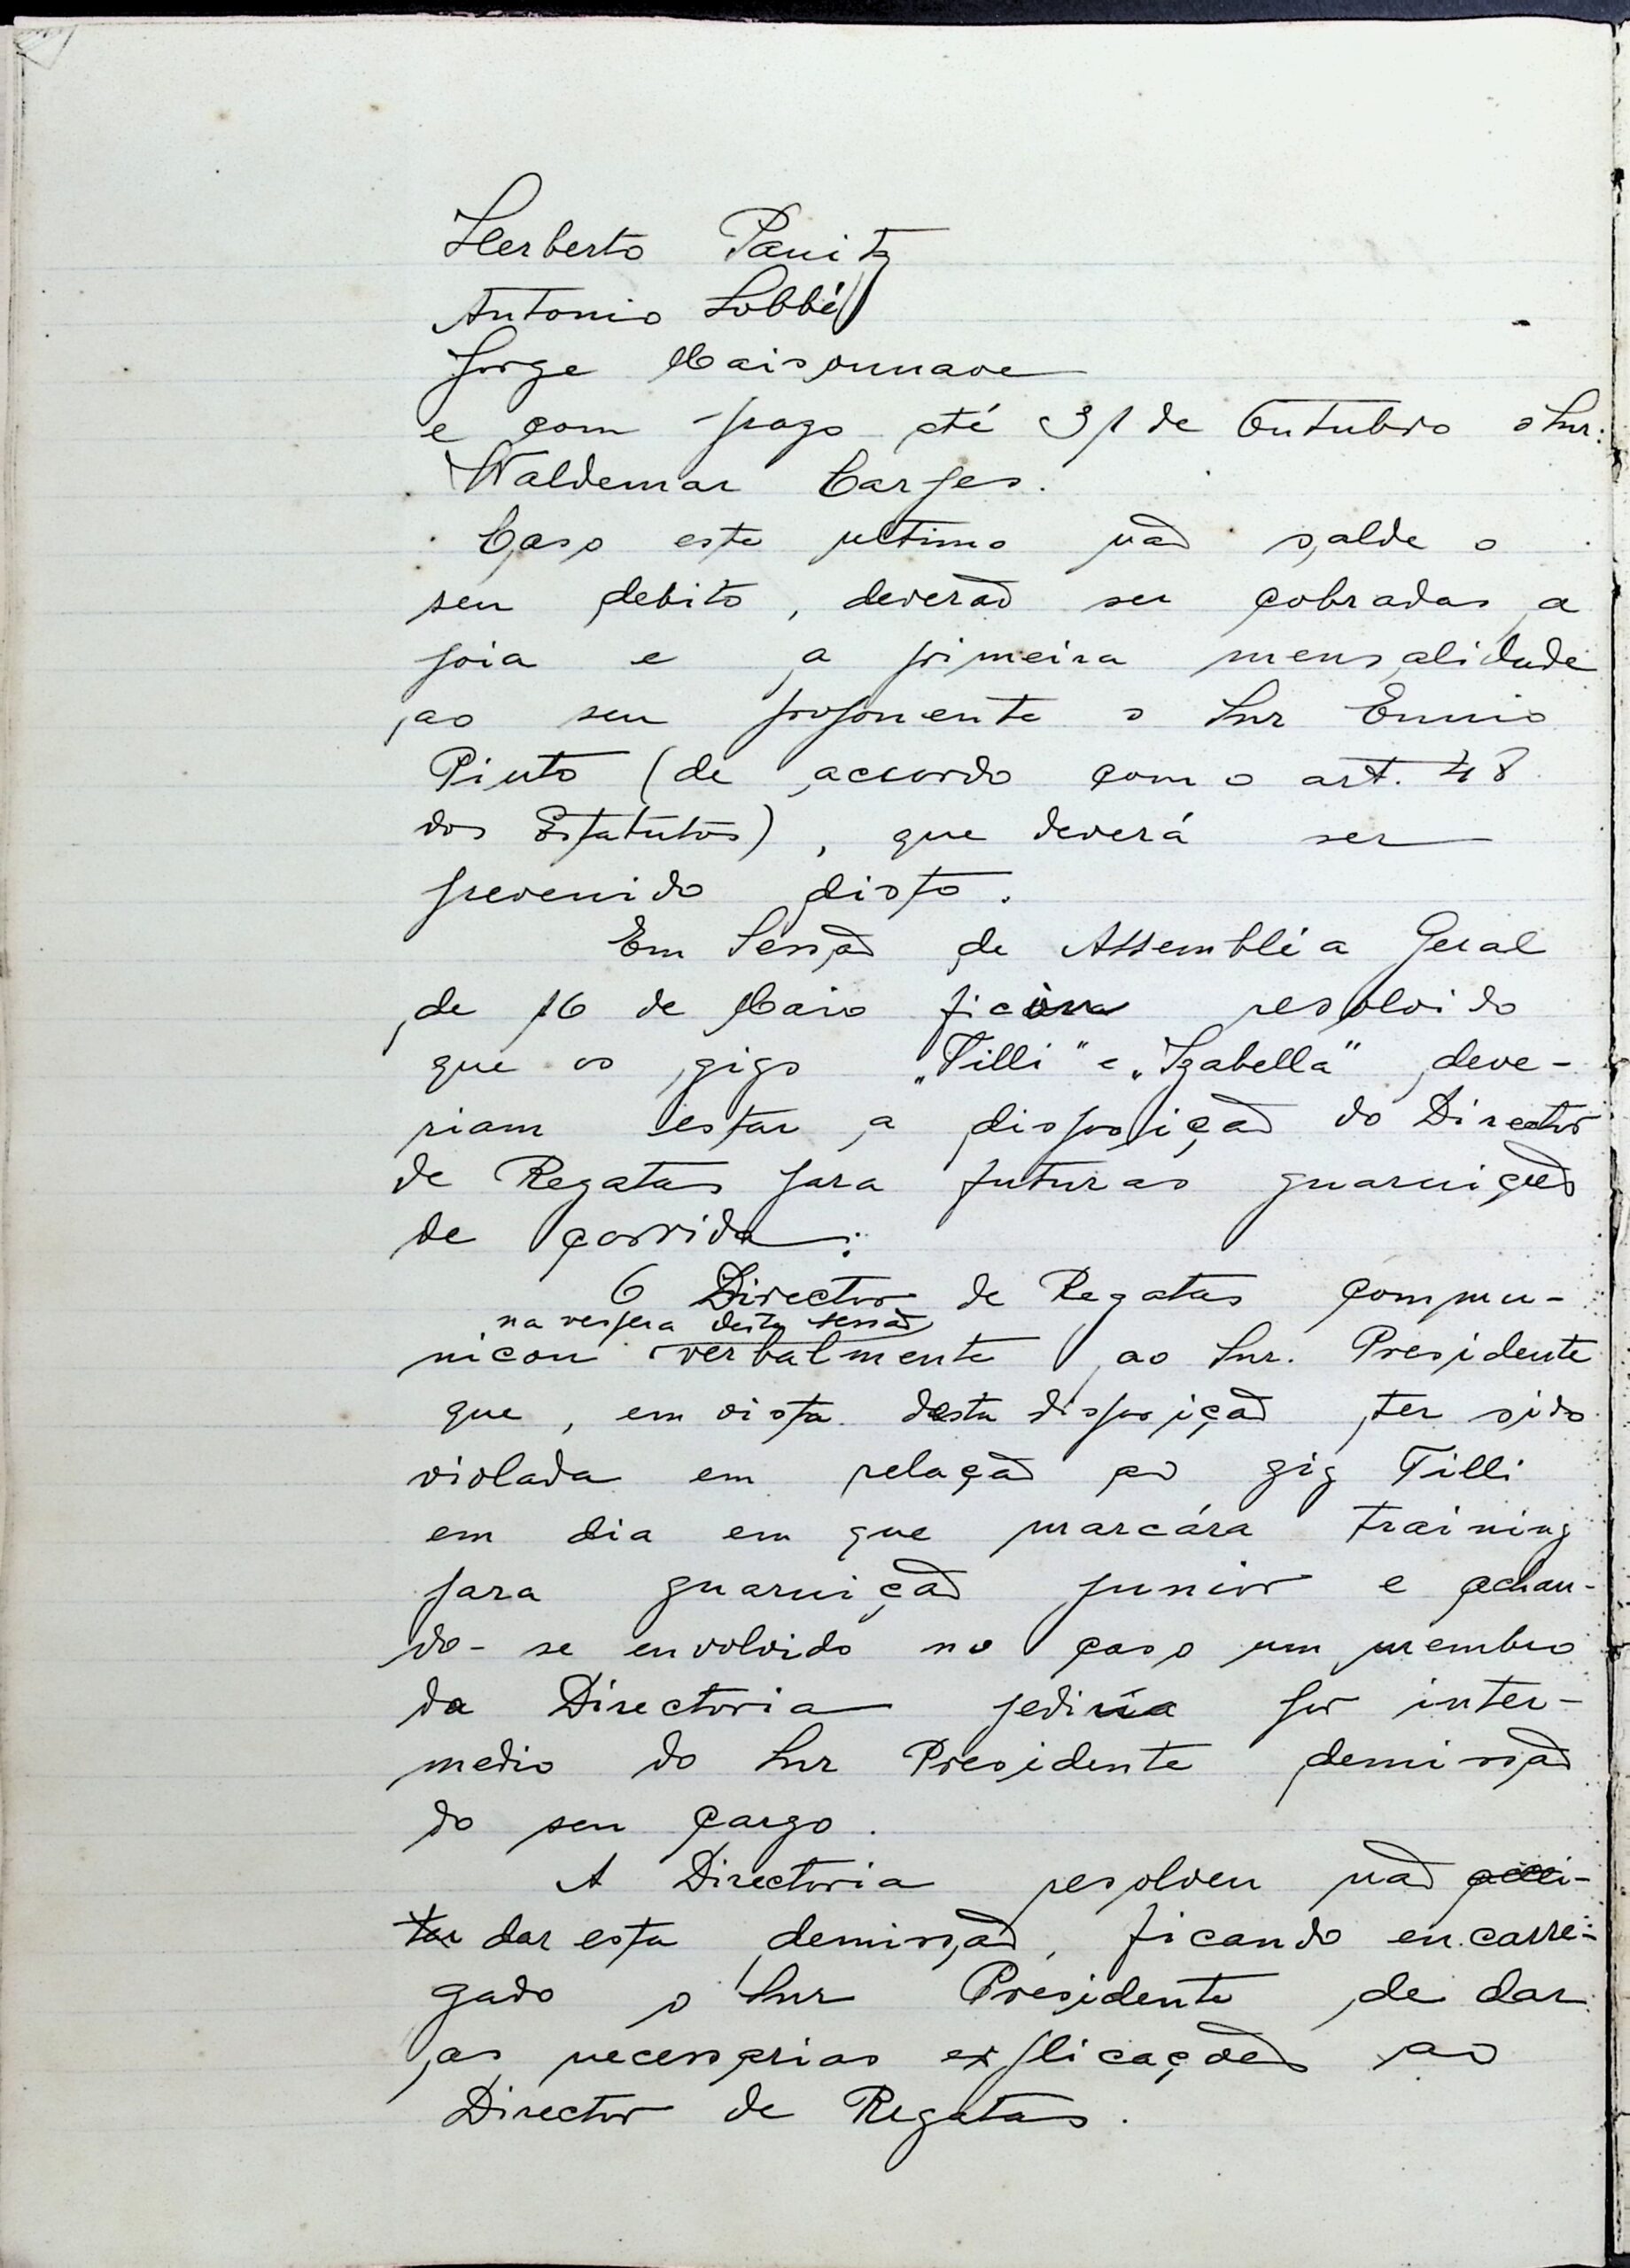 Herberto Panitz
Antonio Lobbé
Jorge Maisonnave
e com prazo até 31 de Outubro o Snr:
Waldemar Carges.
Caso este ultimo não salde o
seu debito, deverão ser cobradas a
joia e a primeira mensalidade
ao seu proponente o Snr Ennio
Pinto (de accordo com o art. 48
dos Estatutos), que deverá ser
prevenido disto.
Em Sessão de Assembléa Geral
de 16 de Maio ficára resolvido
que os gigs „Tilli" e „Izabella" deve-
riam estar a disposição do Director
de Regatas para futuras guarnições
de corrida.
O Director de Regatas commu-
na vespera desta sessão
nicou verbalmente ao Snr. Presidente
que, em vista desta disposição ter sido
violada em relação ao gig Tilli
em dia em que marcára training
para guarnição junior e achan-
do-se envolvido no caso um membro
da Directoria pediria por inter-
medio do Snr Presidente demissão
do seu cargo.
A Directoria resolveu não accei-
tar dar esta demissão, ficando encarre-
gado o Snr Presidente de dar
as necessarias explicações ao
Director de Regatas.